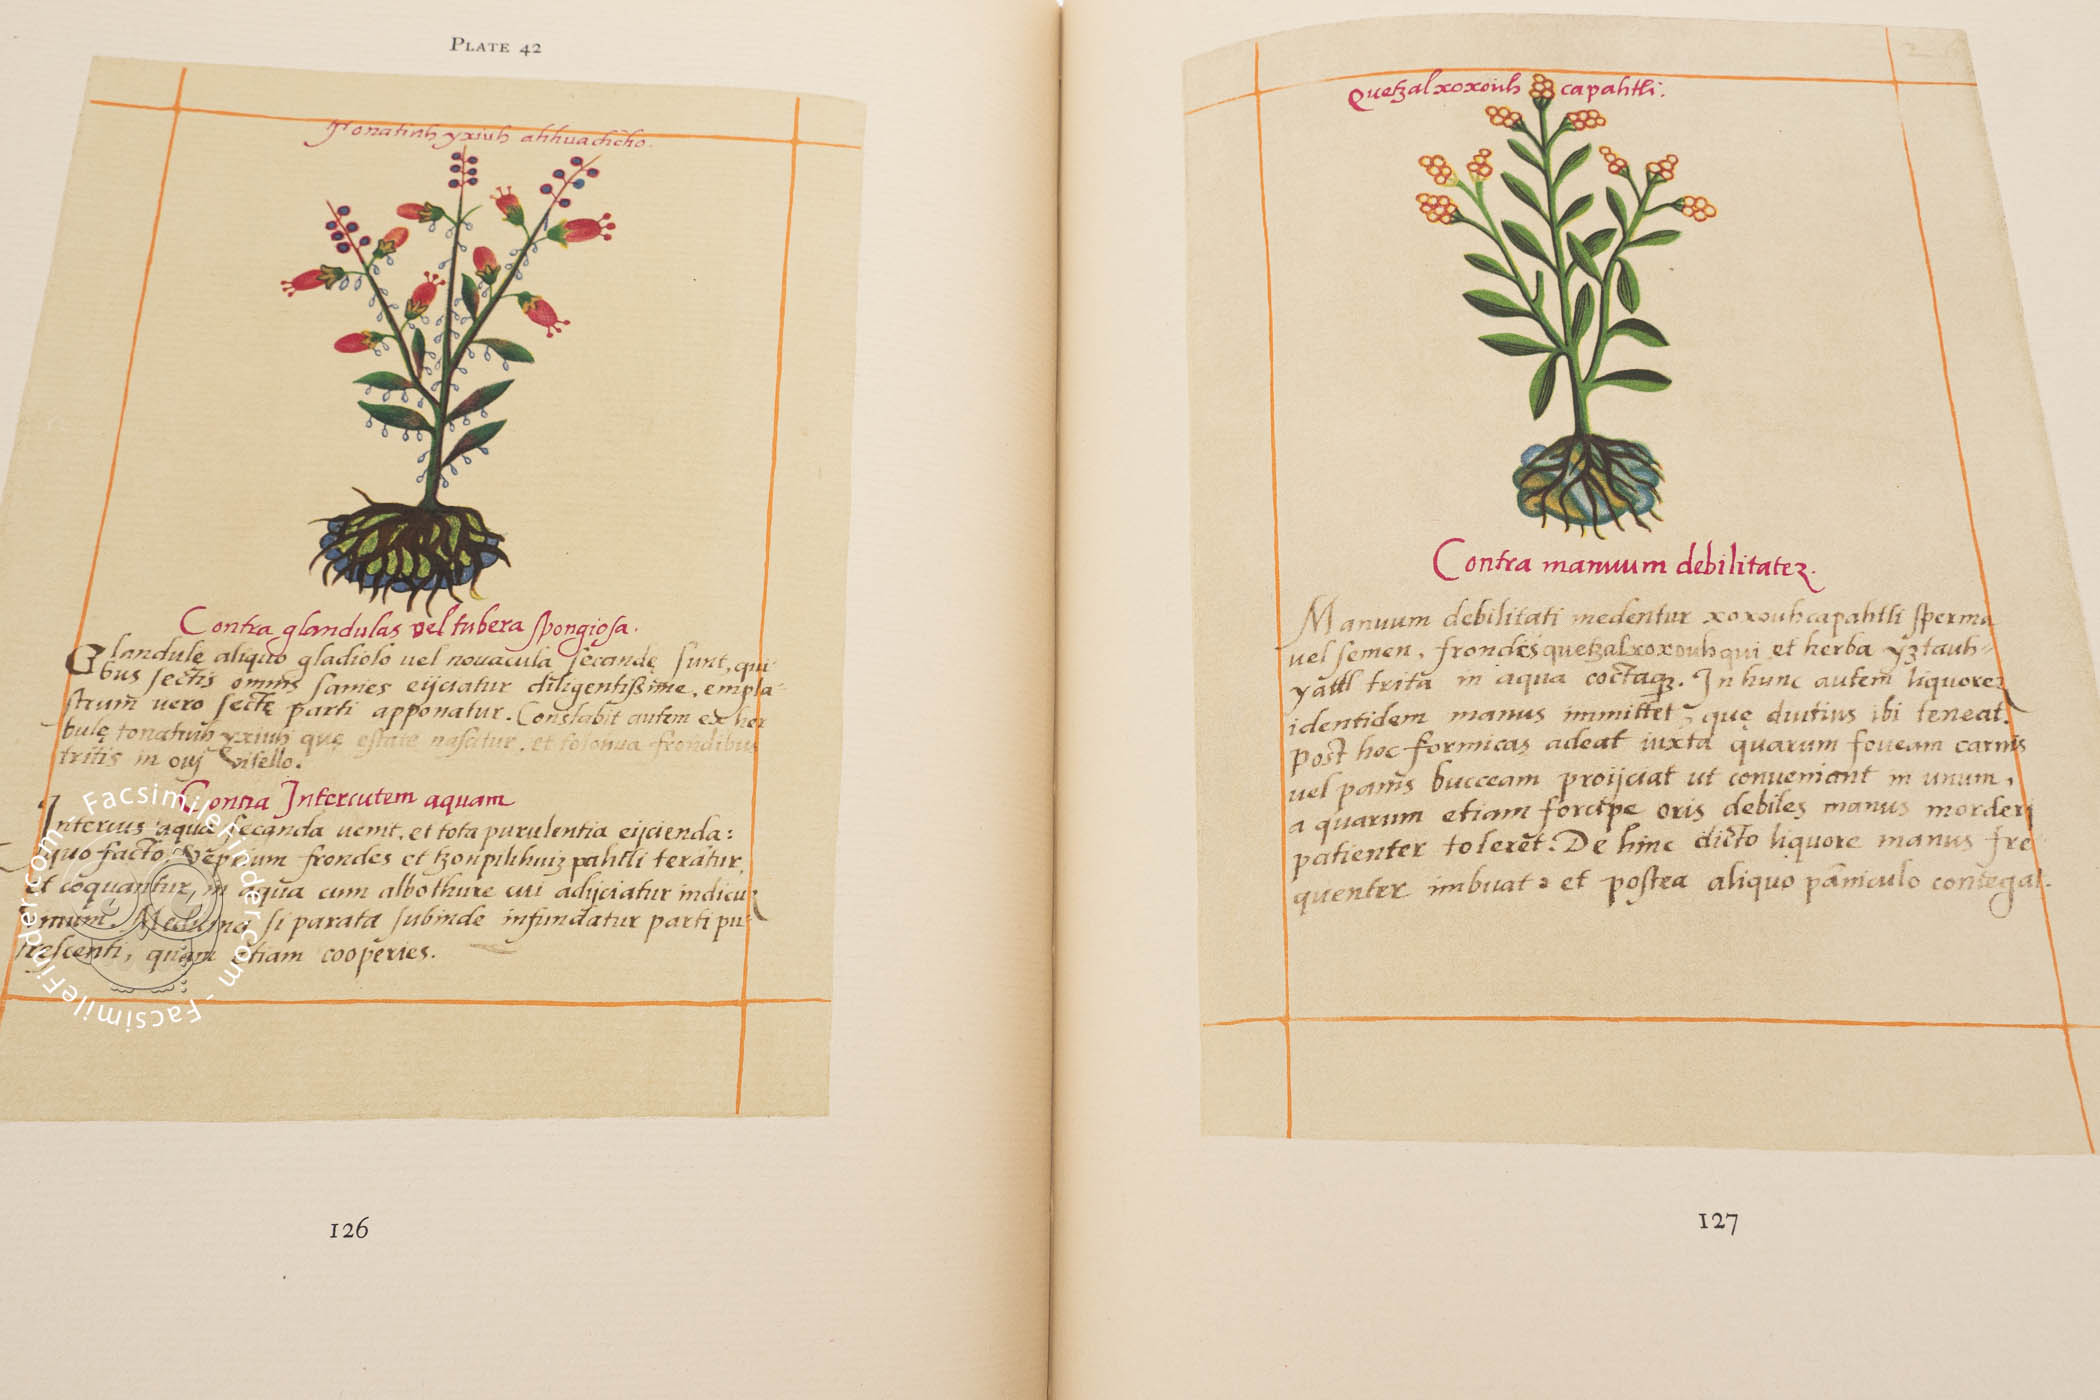 PLATE 42
Tonatiuh yxiuh ahhuachcho.
Contra glandulas vel tubera spongiosa.
Glandulę aliquo gladiolo uel nouacula secandę sunt, qui-
bus sectis omnis sanies eijciatur diligentissime, empla-
strum uero sectę parti apponatur. Constabit autem ex her
bulę tonatiuh yxiuh quę estate nascitur, et tolohua frondibus
tritis in ouj vitello.
Contra Intercutem aquam
Intercus aqua secanda uenit, et tota purulentia eijcienda:
quo facto, veprium frondes et tzonpilihuizpahtli terātur,
et coquantur in aqua cum albo thure cui adijciatur indicū
uinum. Medicina si parata subinde infundatur parti pu-
trescenti, quam etiam cooperies.
126
Quetzalxoxouh capahtli.
Contra manuum debilitatez.
Manuum debilitati medentur xoxouhcapahtli sperma
uel semen, frondes quetzalxoxouhqui et herba yztauh=
yattl trita in aqua coctaqz. In hunc autem liquorez
identidem manus immittet, quę diutius ibi teneat.
Post hoc formicas adeat iuxta quarum foueam carnis
uel panis bucceam proijciat ut conueniant in unum,
a quarum etiam forcipe oris debiles manus morderj
patienter toleret. De hinc dicto liquore manus fre
quenter imbuat, et postea aliquo pāniculo contegat.
127
FacsimileFinder.com - FacsimileFinder.com